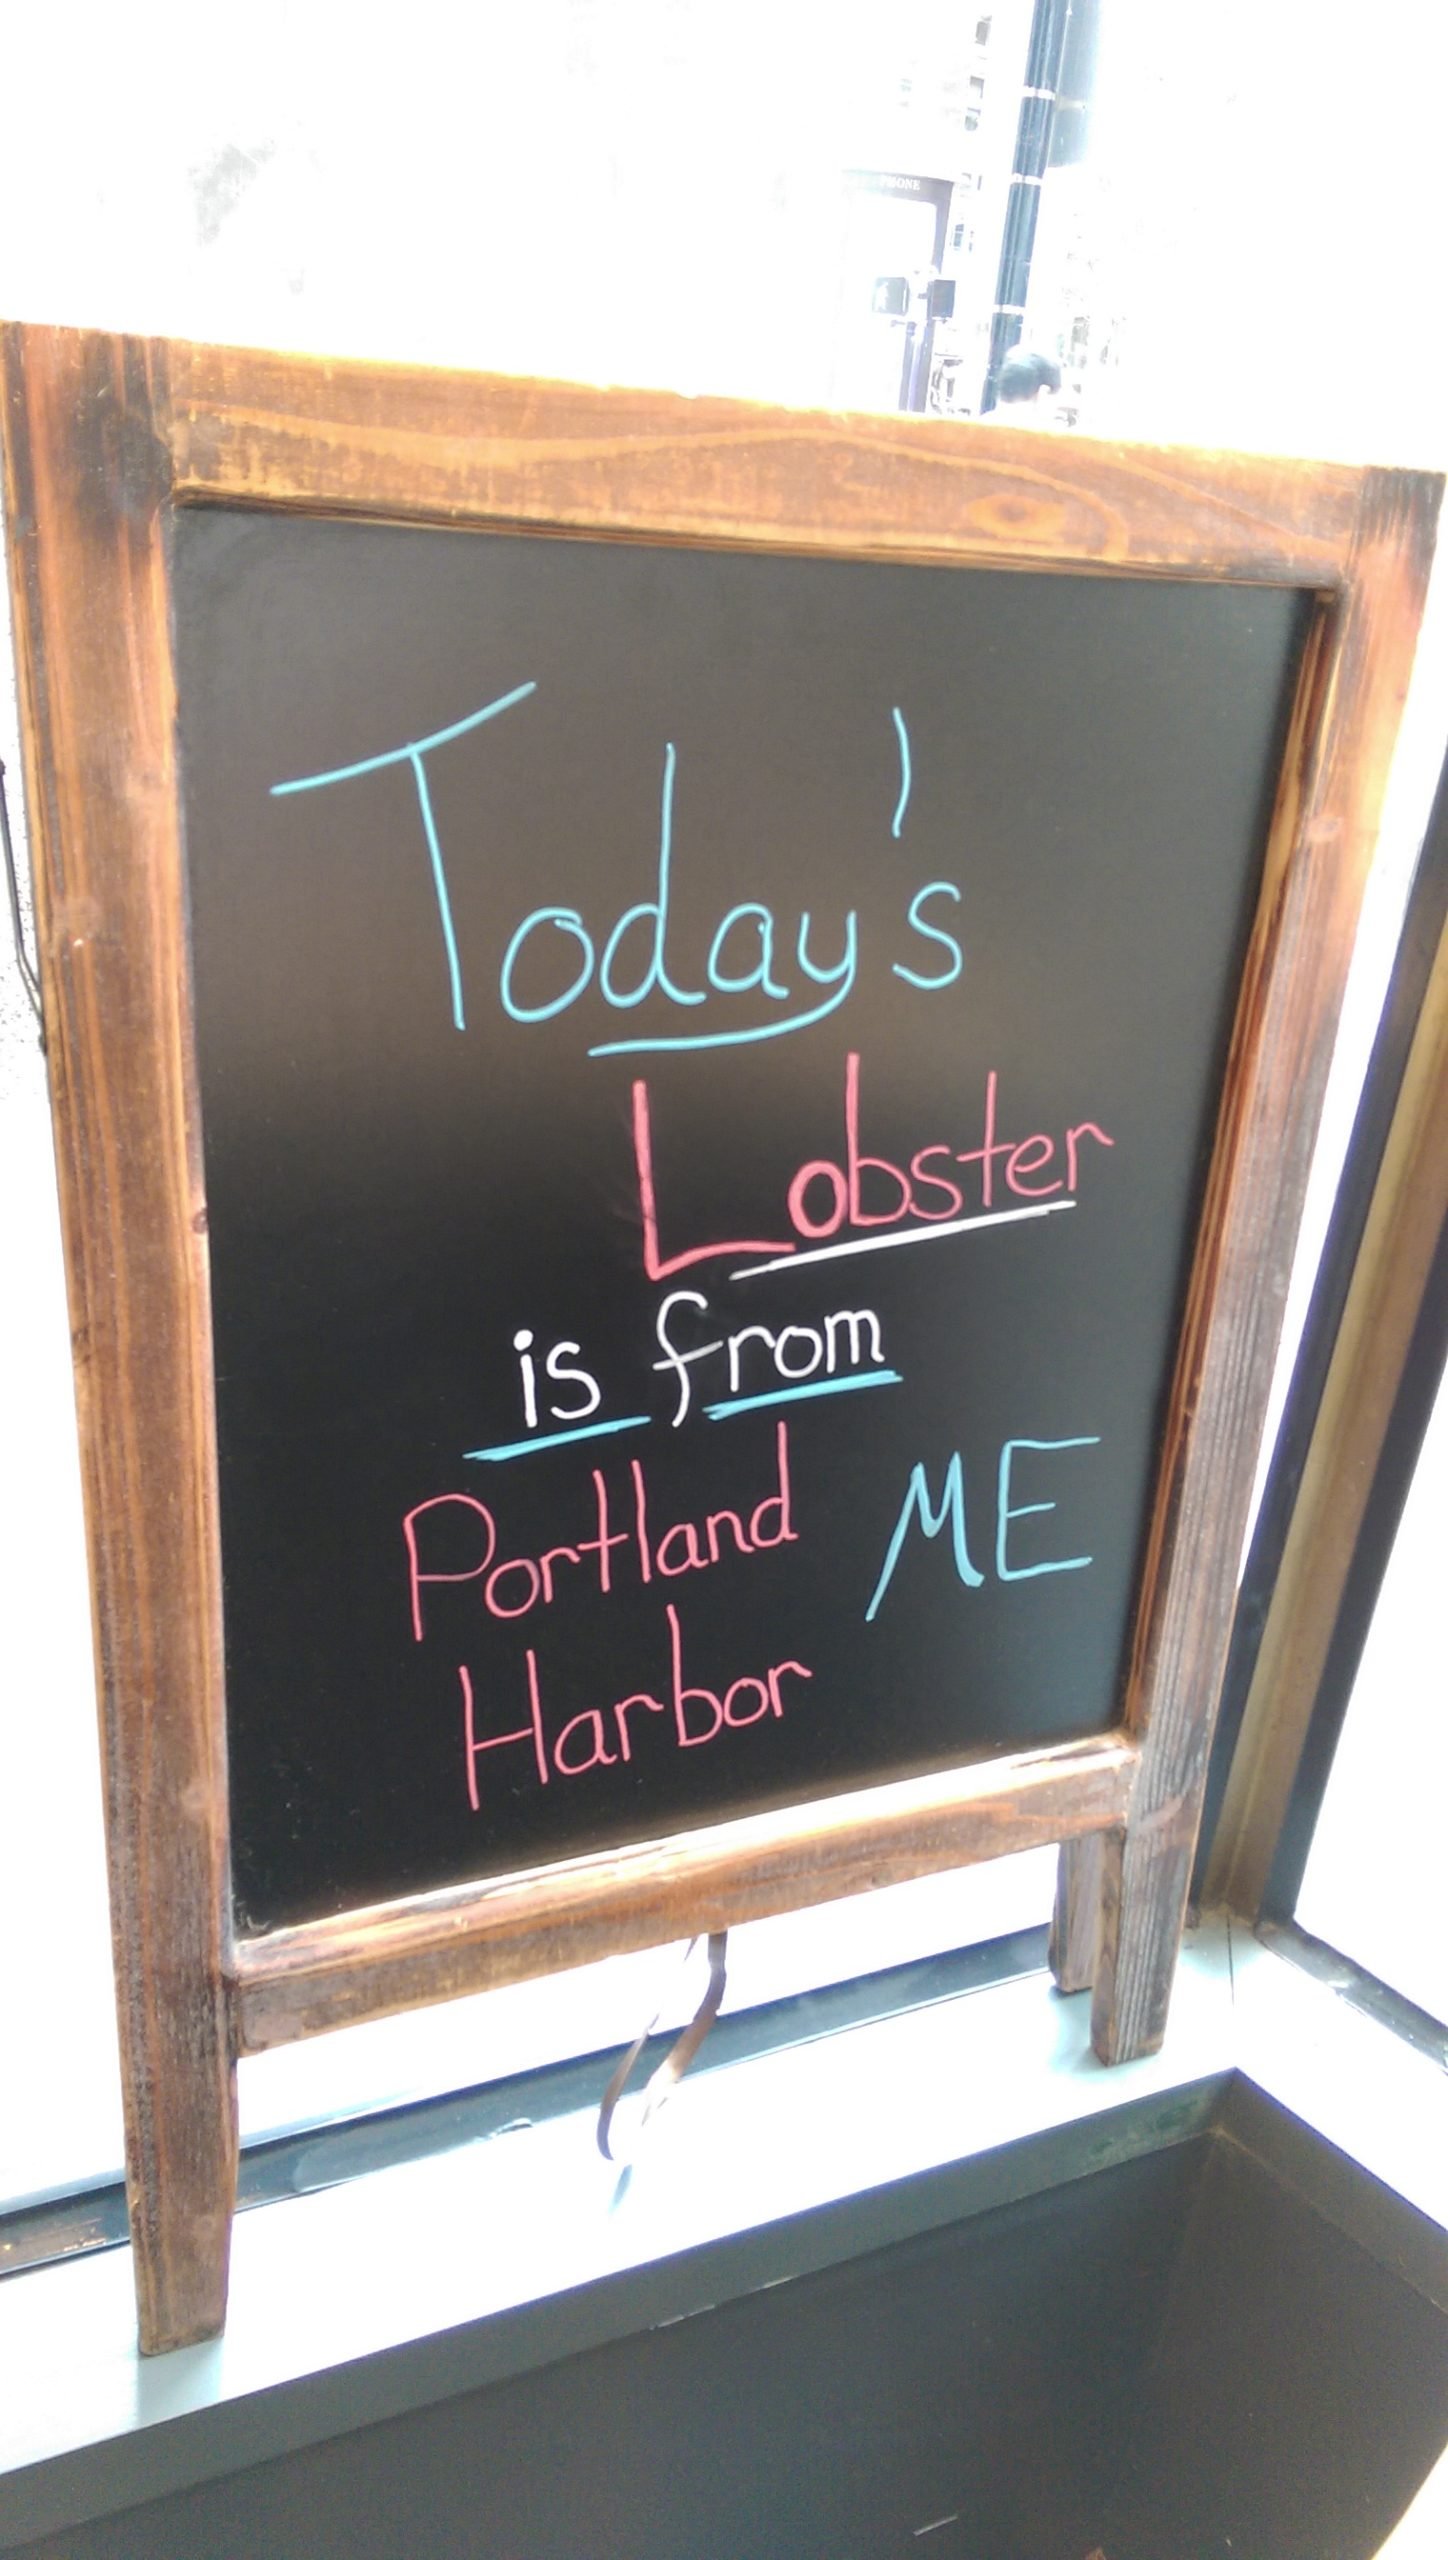 PHONE
Today's
Lobster
is from
Portland ME
Harbor